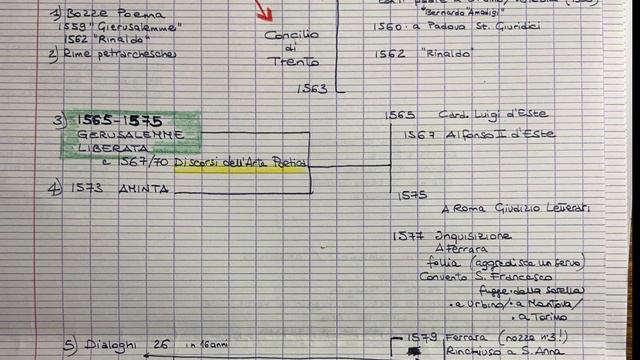 1) Bozze Poema
1559 "Gierusalemme"
1562 "Rinaldo"
2) Rime petrarchesche
Concilio
di
Trento
1563
"Bernardo" Amadigi"
1560 · a Padova St. Giuridici
1562 "Rinaldo"
3) 1565-1575
GERUSALEMME
LIBERATA
c 567/70 Discorsi dell'Arte Poetica
4) 1573 AMINTA
1565 Card. Luigi d'Este
1567 Alfonso II d'Este
1575
A Roma Giudizio Letterati
1577 Inquisizione
A Ferrara
follia (aggredisce un servo)
Convento S. Francesco
fugge dalla sorella
· a Urbino/· a Mantova/
· a Torino
5) Dialoghi 26 in 16 anni
1579 Ferrara (nozze n°3!)
Rinchiuso a S. Anna